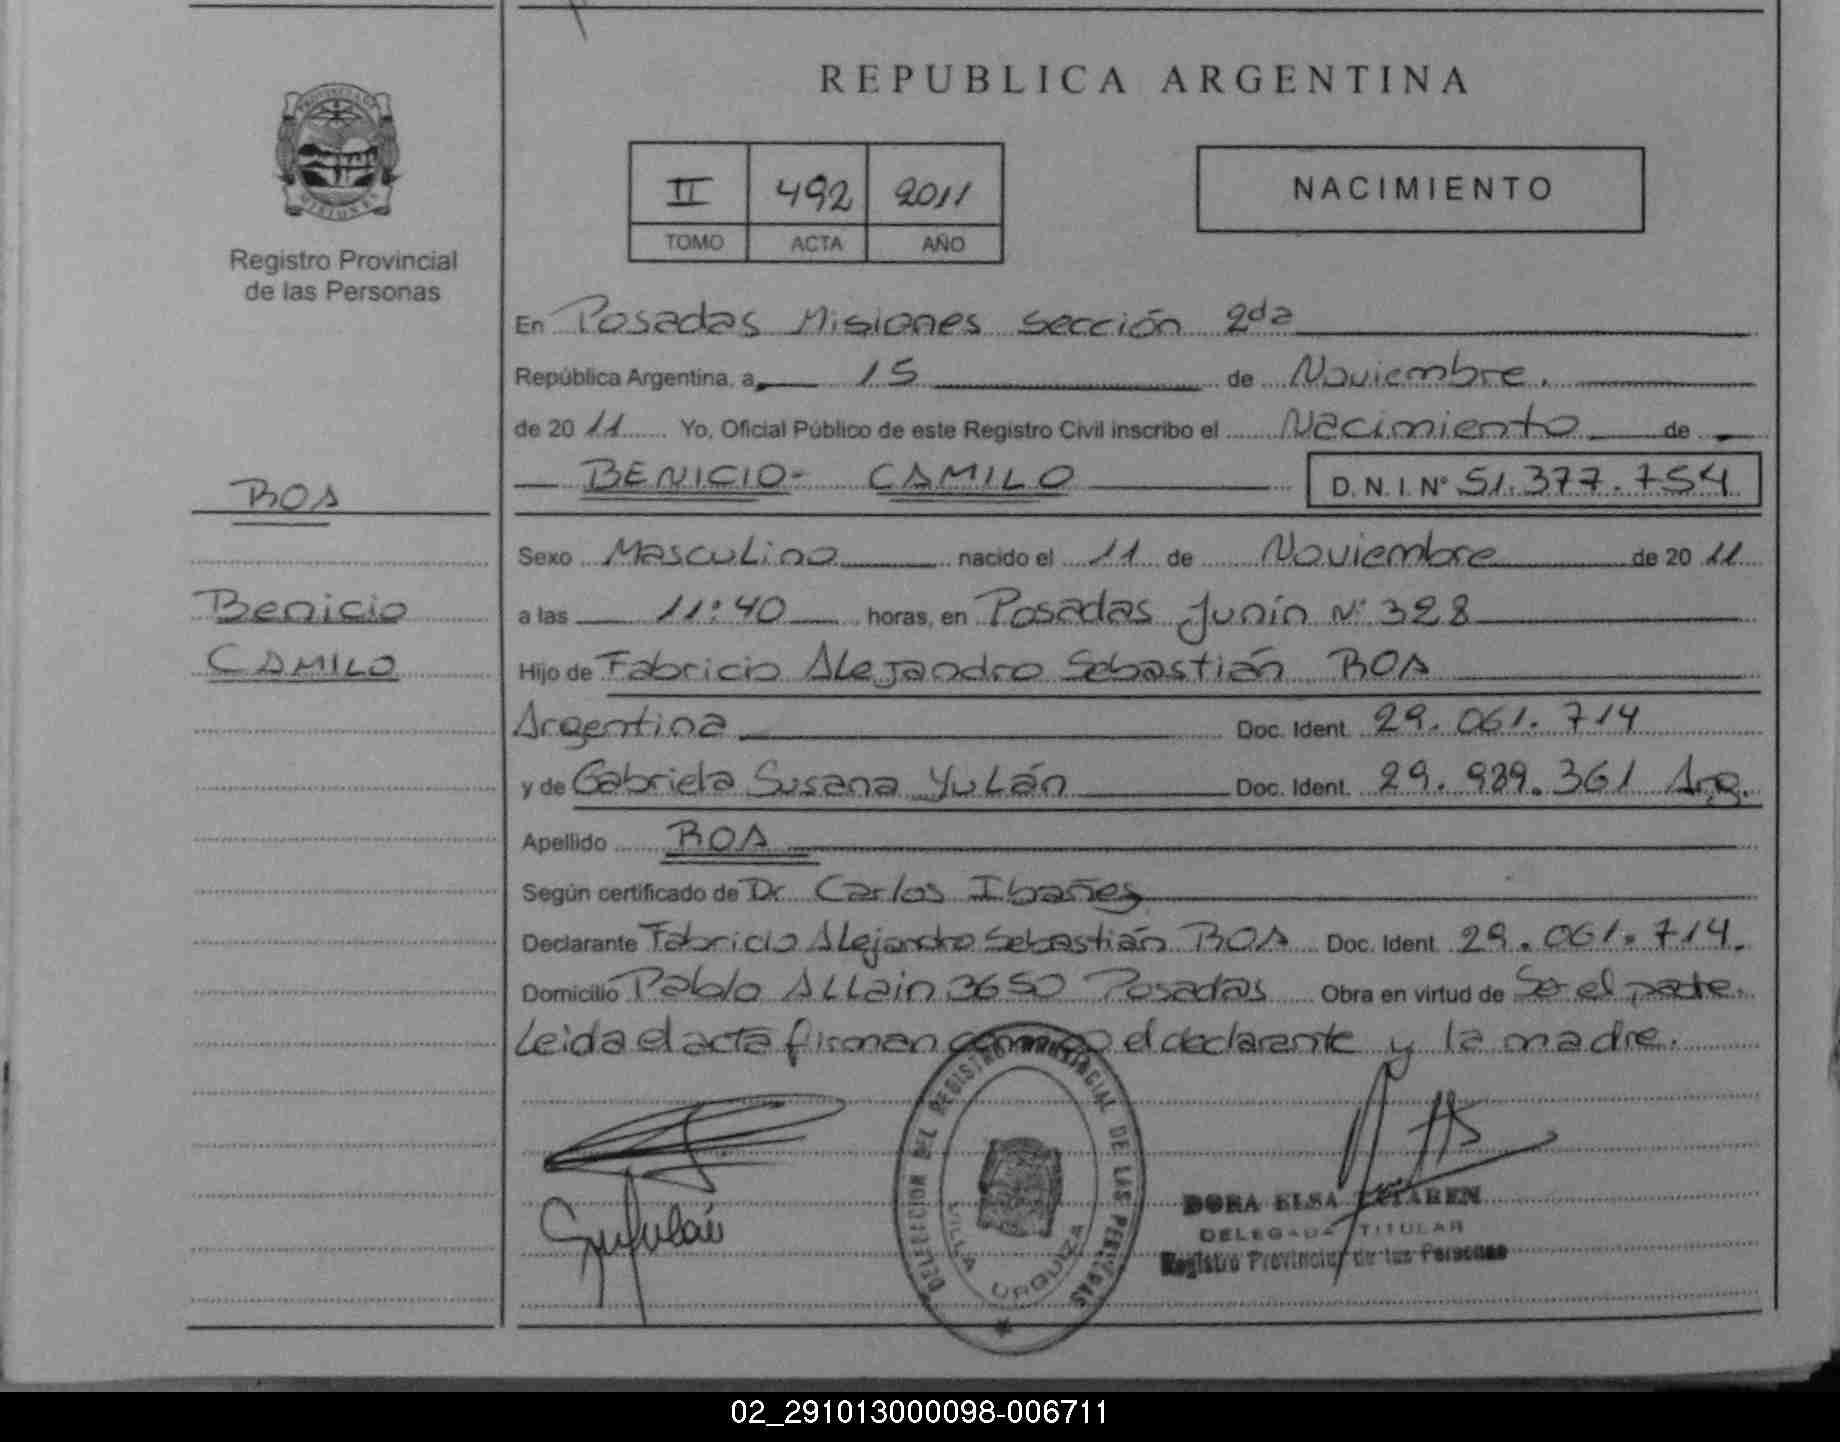 REPUBLICA ARGENTINA
PROVINCIA DE
MISIONES
Registro Provincial
de las Personas
II 492 2011
TOMO ACTA AÑO
NACIMIENTO
En Posadas Misiones sección 2da
República Argentina, a 15 de Noviembre.
de 2011 Yo, Oficial Público de este Registro Civil inscribo el Nacimiento de
BENICIO- CAMILO D.N.I. N° 51.377.754
BOA
Sexo Masculino nacido el 11 de Noviembre de 2011
Benicio
a las 11:40 horas, en Posadas Junín N° 328
CAMILO
Hijo de Fabricio Alejandro Sebastián BOA
Argentina Doc. Ident. 29.061.714
y de Gabriela Susana Yulán Doc. Ident. 29.989.361 Arg.
Apellido BOA
Según certificado de Dr. Carlos Ibañes
Declarante Fabricio Alejandro Sebastián BOA Doc. Ident. 29.061.714.
Domicilio Pablo Allain 3650 Posadas Obra en virtud de Ser el padre.
Leida el acta firman el declarante y la madre.
DELEGACION DEL REGISTRO PROVINCIAL DE LAS PERSONAS
VILLA URQUIZA
DORA ELSA
DELEGADA TITULAR
Registro Provincial de las Personas
02_291013000098-006711